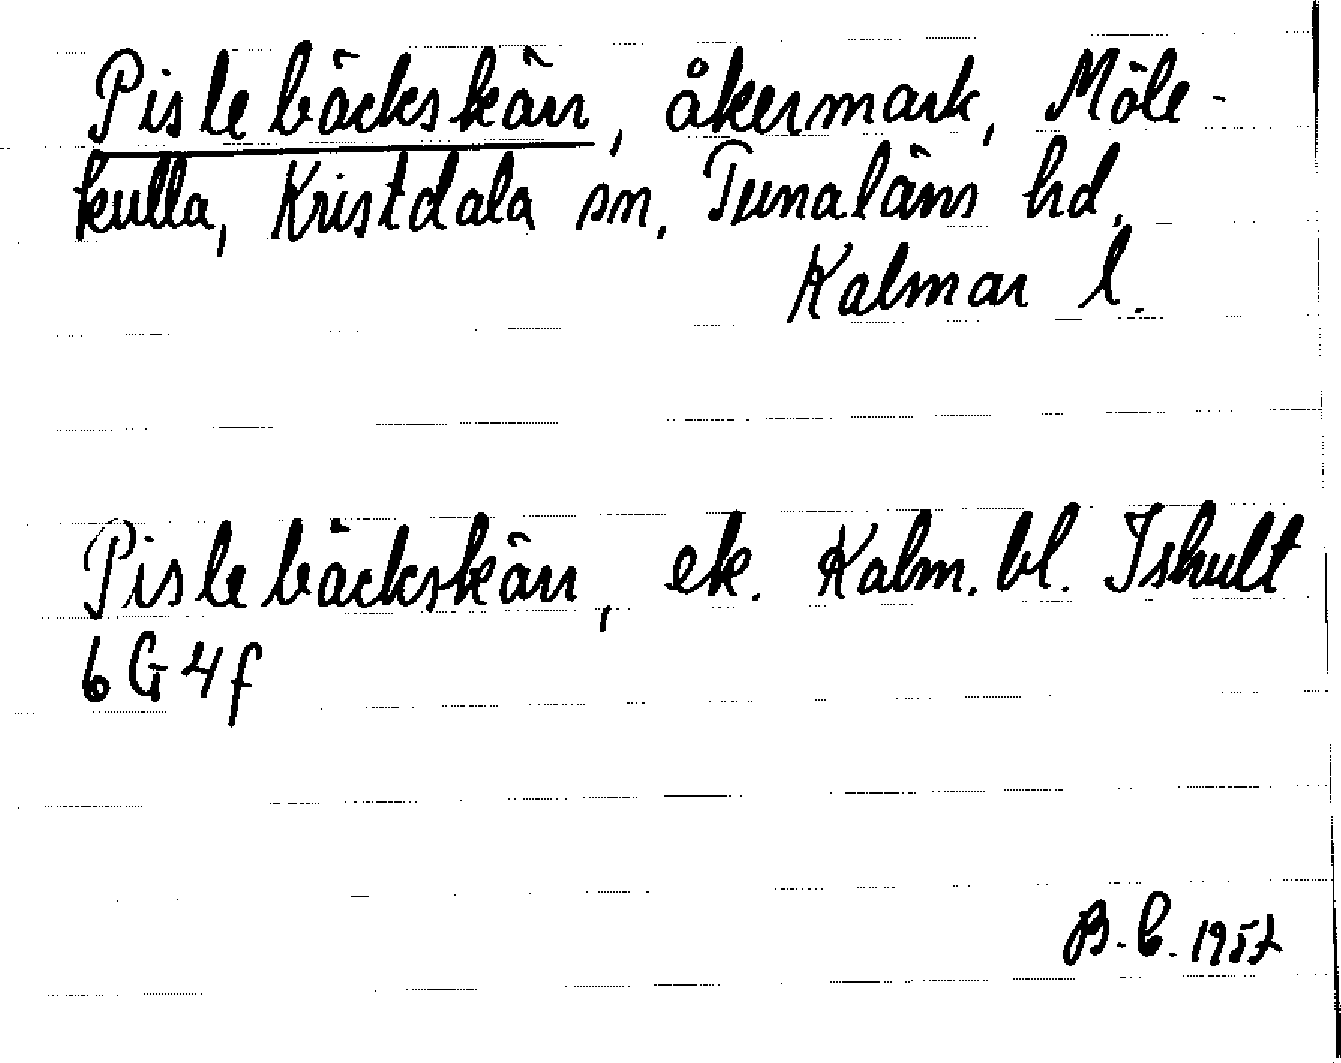 Pislebäckskärr, åkermark, Möle-
kulla, Kristdala sn, Tunaläns hd,
Kalmar l.
Pislebäckskärr, ek. Kalm. bl. Ishult
6G4f
B.C. 1957